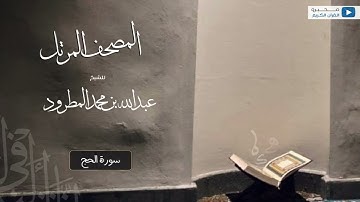 المصحف المرتل
للشيخ
عبدالله بن محمد المطرود
سورة الحج
القرآن الكريم